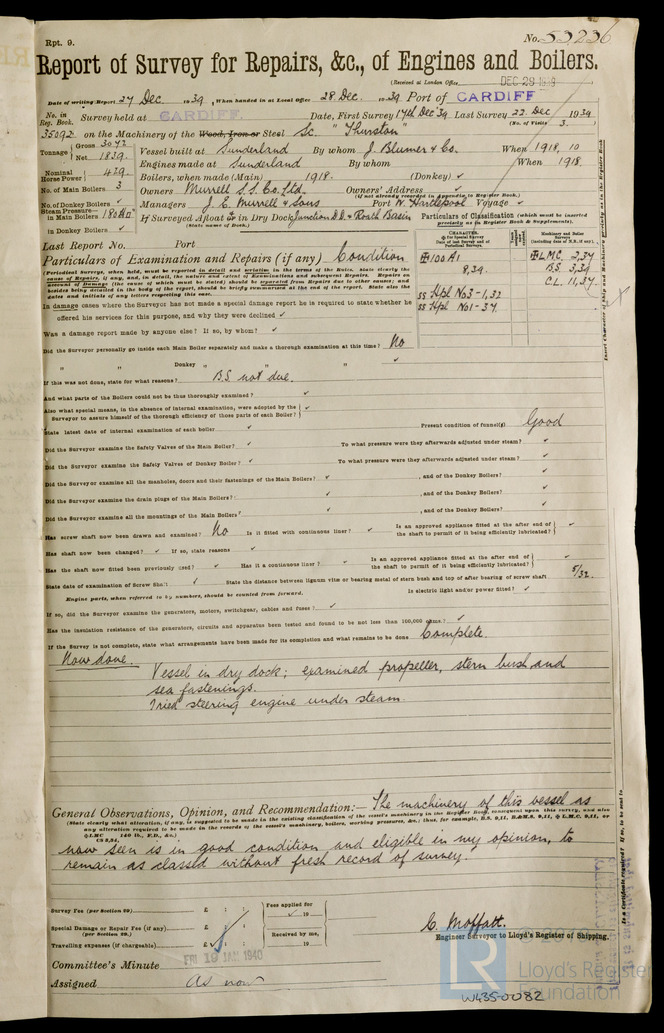 Rpt. 9.
No. 53236
Report of Survey for Repairs, &c., of Engines and Boilers.
(Received at London Office DEC 29 1939
Date of writing Report 27 Dec. 1939, When handed in at Local Office 28 Dec. 1939 Port of CARDIFF
No. in Reg. Book. Survey held at CARDIFF Date, First Survey 14th Dec '39 Last Survey 22. Dec 1939
(No. of Visits 3.
35092 on the Machinery of the Wood, Iron or Steel Sc. "Thurston"
Tonnage Gross 3072 Net 1839.
Vessel built at Sunderland By whom J. Blumer & Co. When 1918, 10
Engines made at Sunderland By whom When 1918.
Nominal Horse Power 429.
Boilers, when made (Main) 1918. (Donkey) ✓
No. of Main Boilers 3
Owners Murrell S.S. Co. Ltd. Owners' Address ✓
(if not already recorded in Appendix to Register Book.)
No. of Donkey Boilers ✓
Managers J. E. Murrell & Sons Port W. Hartlepool Voyage ✓
Steam Pressure— in Main Boilers 180
in Donkey Boilers ✓
If Surveyed Afloat & in Dry Dock Junction D.D. & Roath Basin
(State name of Dock.)
Particulars of Classification (which must be inserted precisely as in Register Book & Supplements).
CHARACTER.
Machinery and Boiler Surveys
✠100A1
8,39.
SS Hpl No3-1,32
SS Hpl No1-37.
✠L.M.C. 2,37
B.S. 3,39
C.L. 11,37.
Last Report No. Port
Particulars of Examination and Repairs (if any) Condition
In damage cases where the Surveyor has not made a special damage report he is required to state whether he
offered his services for this purpose, and why they were declined ✓
Was a damage report made by anyone else? If so, by whom? ✓
Did the Surveyor personally go inside each Main Boiler separately and make a thorough examination at this time? No
" " Donkey " " " ✓
If this was not done, state for what reasons? B.S. not due.
And what parts of the Boilers could not be thus thoroughly examined? ✓
Also what special means, in the absence of internal examination, were adopted by the
Surveyor to assure himself of the thorough efficiency of those parts of each Boiler? ✓
State latest date of internal examination of each boiler ✓ Present condition of funnel(s) Good
Did the Surveyor examine the Safety Valves of the Main Boiler? ✓ To what pressure were they afterwards adjusted under steam? ✓
Did the Surveyor examine the Safety Valves of Donkey Boiler? ✓ To what pressure were they afterwards adjusted under steam? ✓
Did the Surveyor examine all the manholes, doors and their fastenings of the Main Boilers? ✓, and of the Donkey Boilers? ✓
Did the Surveyor examine the drain plugs of the Main Boilers? ✓, and of the Donkey Boilers? ✓
Did the Surveyor examine all the mountings of the Main Boilers? ✓, and of the Donkey Boilers? ✓
Has screw shaft now been drawn and examined? No Is it fitted with continuous liner? ✓ Is an approved appliance fitted at the after end of the shaft to permit of it being efficiently lubricated? ✓
Has shaft now been changed? ✓ If so, state reasons ✓
Has the shaft now fitted been previously used? ✓ Has it a continuous liner? ✓ Is an approved appliance fitted at the after end of the shaft to permit of it being efficiently lubricated? ✓
State date of examination of Screw Shaft ✓ State the distance between lignum vitæ or bearing metal of stern bush and top of after bearing of screw shaft 5/32.
Engine parts, when referred to by numbers, should be counted from forward. Is electric light and/or power fitted? ✓
If so, did the Surveyor examine the generators, motors, switchgear, cables and fuses? ✓
Has the insulation resistance of the generators, circuits and apparatus been tested and found to be not less than 100,000 ohms? ✓
If the Survey is not complete, state what arrangements have been made for its completion and what remains to be done Complete.
Now done. Vessel in dry dock; examined propeller, stern bush and
sea fastenings.
Tried steering engine under steam.
General Observations, Opinion, and Recommendation:— The machinery of this vessel as
now seen is in good condition and eligible in my opinion, to
remain as classed without fresh record of survey.
Survey Fee (per Section 29) £ : :
Fees applied for 19
Special Damage or Repair Fee (if any) (per Section 29.) £ : :
Received by me, 19
Travelling expenses (if chargeable) £ : :
C. Moffatt.
Engineer Surveyor to Lloyd's Register of Shipping.
FRI 19 JAN 1940
Committee's Minute
Assigned As now
LR Lloyd's Register Foundation
W435-0082